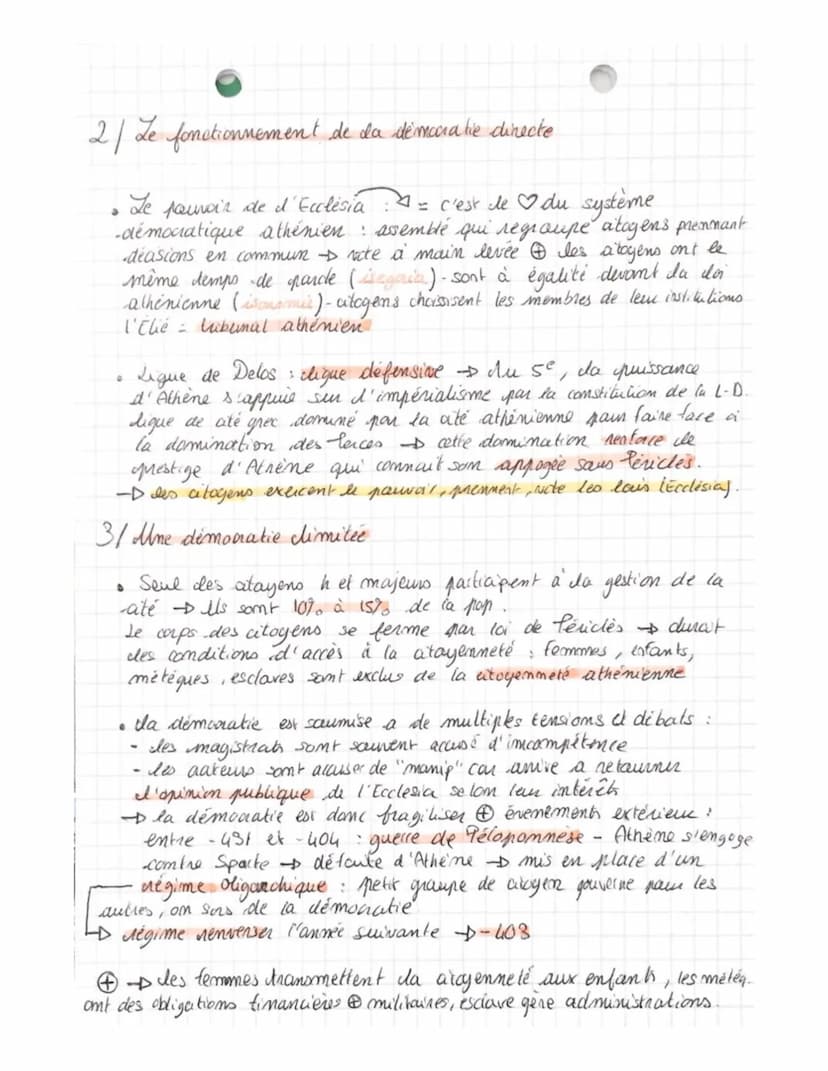 2/ Le fonctionnement de la démocratie directe
• Le pouvoir de l'Ecclésia : = c'est le ♡ du système
démocratique athénien : assemblé qui regroupe citoyens prennant
décisions en commun → vote à main levée ⊕ les citoyens ont le
même temps de parole (isegoria) - sont à égalité devant la loi
athénienne (isonomie) - citoyens choisissent les membres de leur institutions
l'Élié = tribunal athénien
• Ligue de Delos : ligue défensive → Au 5e, la puissance
d'Athène s'appuie sur l'impérialisme par la constitution de la L-D.
ligue de cité grec dominé par la cité athénienne pour faire face à
la domination des Perces → cette domination renforce le
prestige d'Athène qui connait son appogée sous Périclès.
→ les citoyens exercent le pouvoir, prennent, vote les lois (Ecclésia).
3/ Une démocratie limitée
• Seul les citoyens h et majeurs participent à la gestion de la
cité → Ils sont 10% à 15% de la pop.
Le corps des citoyens se ferme par loi de Périclès → durcit
les conditions d'accès à la citoyenneté : femmes, enfants,
métèques, esclaves sont exclus de la citoyenneté athénienne
• la démocratie est soumise a de multiples tensions et débats :
- les magistrats sont souvent accusé d'incompétence
- les orateurs sont accuser de "manip" car arrive a retourner
l'opinion publique de l'Ecclesia selon leur intérêts
→ la démocratie est donc fragiliser ⊕ évenements extérieur :
entre -431 et -404 : guerre de Péloponnèse - Athène s'engage
contre Sparte → défaite d'Athène → mis en place d'un
régime oligarchique : petit groupe de citoyen gouverne pour les
autres, on sors de la démocratie
→ régime renverser l'année suivante → -403
⊕ → les femmes transmettent la citoyenneté aux enfants, les métèq.
ont des obligations financières ⊕ militaires, esclave gère administrations.